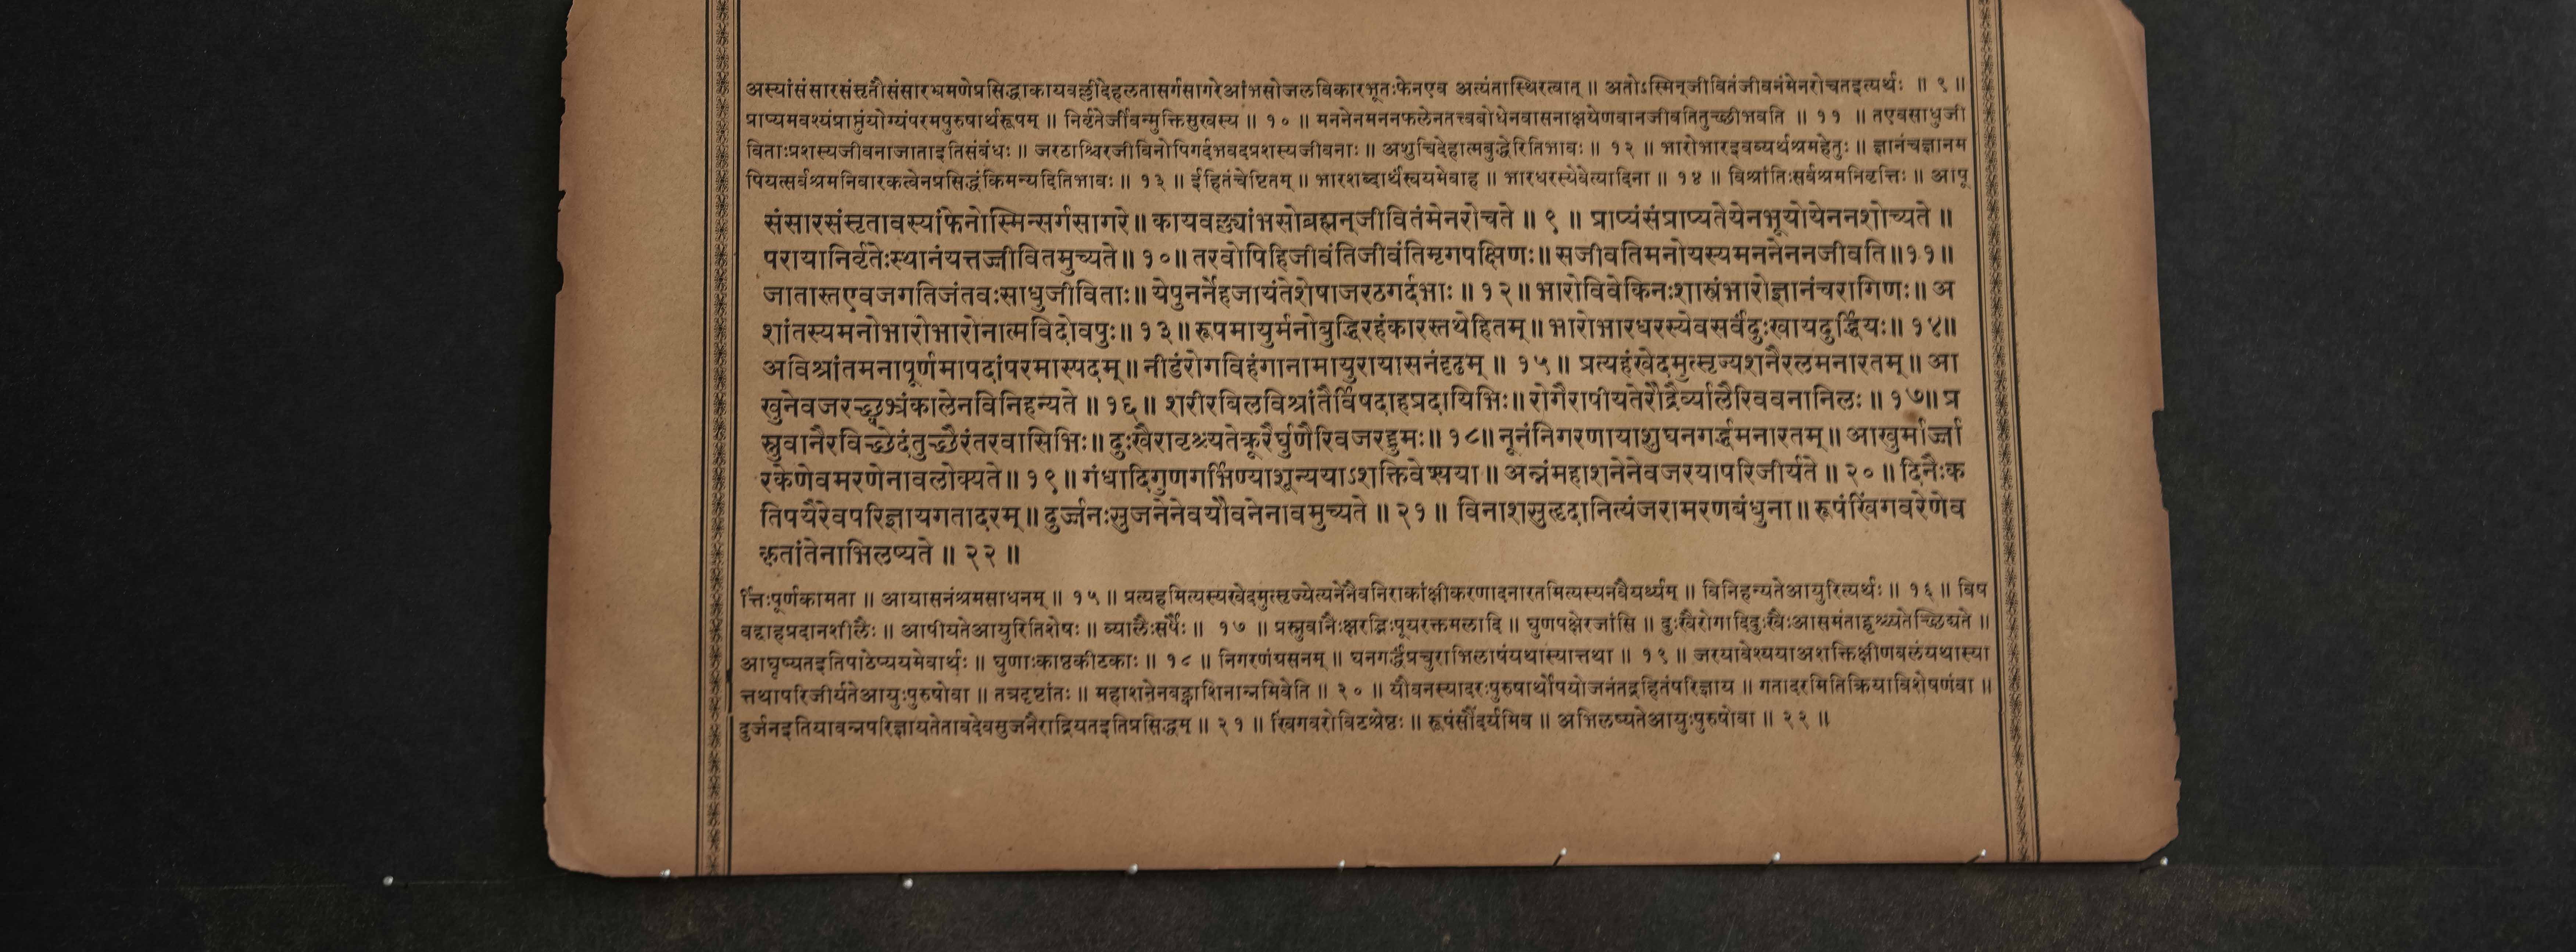 अस्यांसंसारसंसृतौसंसारभ्रमणेप्रसिद्धाकायवल्लीदेहलतासर्गसागरेआंभसोजलविकारभूतःफेनएव अत्यंतास्थिरत्वात् ॥ अतोऽस्मिन्जीवितंजीवनंमेनरोचतइत्यर्थः ॥ ९ ॥
प्राप्यमवश्यंप्राप्तुंयोग्यंपरमपुरुषार्थरूपम् ॥ निर्वृतेर्जीवन्मुक्तिसुखस्य ॥ १० ॥ मननेनमननफलेनतत्त्वबोधेनवासनाक्षयेणवानजीवतितुच्छीभवति ॥ ११ ॥ तएवसाधुजी
विताःप्रशस्यजीवनाजाताइतिसंबंधः ॥ जरठाश्चिरजीविनोपिगर्दभवदप्रशस्यजीवनाः ॥ अशुचिदेहात्मबुद्धेरितिभावः ॥ १२ ॥ भारोभारइवव्यर्थश्रमहेतुः ॥ ज्ञानंचज्ञानम
पियत्सर्वश्रमनिवारकत्वेनप्रसिद्धंकिमन्यदितिभावः ॥ १३ ॥ ईहितंचेष्टितम् ॥ भारशब्दार्थंस्वयमेवाह ॥ भारधरस्येवेत्यादिना ॥ १४ ॥ विश्रांतिःसर्वश्रमनिवृत्तिः ॥ आपू
संसारसंसृतावस्यांफेनोस्मिन्सर्गसागरे॥ कायवल्ल्यांभसोब्रह्मन्जीवितंमेनरोचते ॥ ९ ॥ प्राप्यंसंप्राप्यतेयेनभूयोयेननशोच्यते ॥
परायानिर्वृतेःस्थानंयत्तज्जीवितमुच्यते ॥ १० ॥ तरवोपिहिजीवंतिजीवंतिमृगपक्षिणः॥ सजीवतिमनोयस्यमननेननजीवति ॥ ११ ॥
जातास्तएवजगतिजंतवःसाधुजीविताः॥ येपुनर्नेहजायंतेशेषाजरठगर्दभाः ॥ १२ ॥ भारोविवेकिनःशास्त्रंभारोज्ञानंचरागिणः॥ अ
शांतस्यमनोभारोभारोनात्मविदोवपुः॥ १३ ॥ रूपमायुर्मनोबुद्धिरहंकारस्तथेहितम् ॥ भारोभारधरस्येवसर्वंदुःखायदुर्द्धियः॥ १४॥
अविश्रांतमनापूर्णमापदांपरमास्पदम्॥ नीडंरोगविहंगानामायुरायासनंदृढम् ॥ १५ ॥ प्रत्यहंखेदमुत्सृज्यशनैरलमनारतम् ॥ आ
खुनेवजरच्छ्वभ्रंकालेनविनिहन्यते ॥ १६ ॥ शरीरबिलविश्रांतैर्विषदाहप्रदायिभिः॥ रोगैरापीयतेरौद्रैर्व्यालैरिववनानिलः ॥ १७॥ प्र
स्नुवानैरविच्छेदंतुच्छैरंतरवासिभिः॥ दुःखैरावृश्च्यतेक्रूरैर्घुणैरिवजरद्द्रुमः॥ १८॥ नूनंनिगरणायाशुघनगर्द्धमनारतम् ॥ आखुर्मार्ज्जा
रकेणेवमरणेनावलोक्यते ॥ १९ ॥ गंधादिगुणगर्भिण्याशून्ययाऽशक्तिवेश्यया ॥ अन्नंमहाशनेनेवजरयापरिजीर्यते ॥ २० ॥ दिनैःक
तिपयैरेवपरिज्ञायगतादरम् ॥ दुर्ज्जनःसुजनेनेवयौवनेनावमुच्यते ॥ २१ ॥ विनाशसुहृदानित्यंजरामरणबंधुना ॥ रूपंखिंगवरेणेव
कृतांतेनाभिलष्यते ॥ २२ ॥
र्त्तिःपूर्णकामता ॥ आयासनंश्रमसाधनम् ॥ १५ ॥ प्रत्यहमित्यस्यखेदमुत्सृज्येत्यनेनैवनिराकांक्षीकरणादनारतमित्यस्यनवैयर्थ्यम् ॥ विनिहन्यतेआयुरित्यर्थः ॥ १६ ॥ विष
वद्दाहप्रदानशीलैः ॥ आपीयतेआयुरितिशेषः ॥ व्यालैःसर्पैः ॥ १७ ॥ प्रस्नुवानैःक्षरद्भिःपूयरक्तमलादि ॥ घुणपक्षेरजांसि ॥ दुःखैरोगादिदुःखैःआसमंताद्वृश्च्यतेच्छिद्यते ॥
आघृष्यतइतिपाठेप्ययमेवार्थः ॥ घुणाःकाष्ठकीटकाः ॥ १८ ॥ निगरणंग्रसनम् ॥ घनगर्द्धंप्रचुराभिलाषंयथास्यात्तथा ॥ १९ ॥ जरयावेश्ययाअशक्तिक्षीणबलंयथास्या
त्तथापरिजीर्यतेआयुःपुरुषोवा ॥ तत्रदृष्टांतः ॥ महाशनेनबह्वाशिनान्नमिवेति ॥ २० ॥ यौवनस्यादरःपुरुषार्थोपयोजनंतद्रहितंपरिज्ञाय ॥ गतादरमितिक्रियाविशेषणंवा ॥
दुर्जनइतियावन्नपरिज्ञायतेतावदेवसुजनैराद्रियतइतिप्रसिद्धम् ॥ २१ ॥ खिंगवरोविटश्रेष्ठः ॥ रूपंसौंदर्यमिव ॥ अभिलष्यतेआयुःपुरुषोवा ॥ २२ ॥